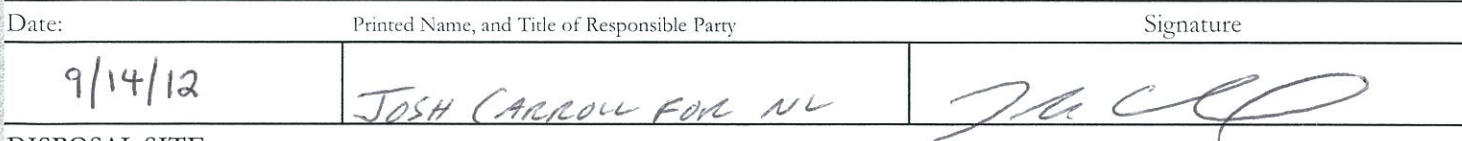 Date: Printed Name, and Title of Responsible Party Signature
9/14/12 JOSH CARROLL FOR NL
DISPOSAL SITE